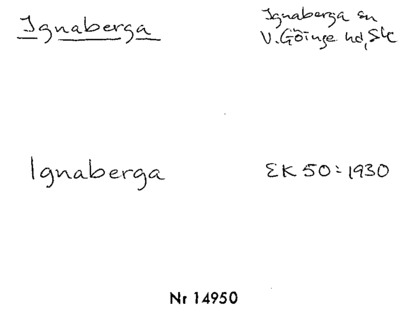 Ignaberga
Ignaberga sn
V. Göinge hd, Sk
Ignaberga
EK 50:1930
Nr 14950